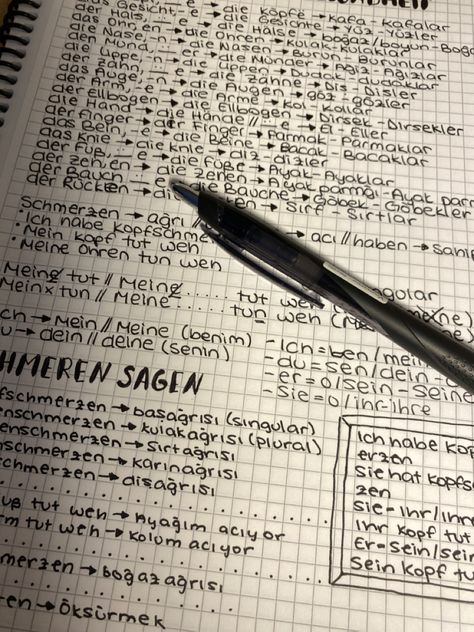 das Gesicht,-e → die Gesichter → Yüz-Yüzler
der Hals, → die Hälse → boğaz/boyun-Boğa
das Ohr,-en → die Ohren → kulak-kulaklar
die Nase,-n → die Nasen → Burun-Burunlar
der Mund, → die Münder → Ağız-Ağızlar
die Lippe,-n → die Lippen → Dudak-dudaklar
der Zahn, -e → die Zähne → Diş-Dişler
das Auge,-n → die Augen → göz-gözler
der Arm,-e → die Arme → Kol-Kollar
der Ellbogen → die Ellbogen → Dirsek-Dirsekler
die Hand → die Hände → El-Eller
der Finger → die Finger → Parmak-Parmaklar
das Bein,-e → die Beine → Bacak-Bacaklar
das Knie,- → die Knie → diz-dizler
der Fuß, -e → die Füße → Ayak-Ayaklar
der Zehen → die Zehen → Ayak parmağı-Ayak parm
der Bauch, -e → die Bäuche → Göbek-Göbekler
der Rücken → die → Sırt-Sırtlar
Schmerzen → ağrı // → acı // haben → sahip
• Ich habe Kopfschme
• Mein Kopf tut weh
• Meine Ohren tun weh
Meine tut // Meine ..... tut weh
Mein tun // Meine ..... tun weh
ch → Mein/Meine (benim)
u → dein/deine (senin)
- Ich = ben/mein
- du = sen/dein-
- er = o/sein-seine
- sie = o/ihr-ihre
HMEREN SAGEN
fschmerzen → başağrısı (singular)
enschmerzen → kulakağrısı (plural)
enschmerzen → sırtağrısı
hschmerzen → karınağrısı
schmerzen → dişağrısı
uß tut weh → Ayağım acıyor
rm tut weh → Kolum acıyor
merzen → boğazağrısı
ten → Öksürmek
Ich habe Kop
erzen
Sie hat Kopfs
zen
Sie-Ihr/Ihr
Ihr Kopf tut
Er-Sein/sein
Sein Kopf tu